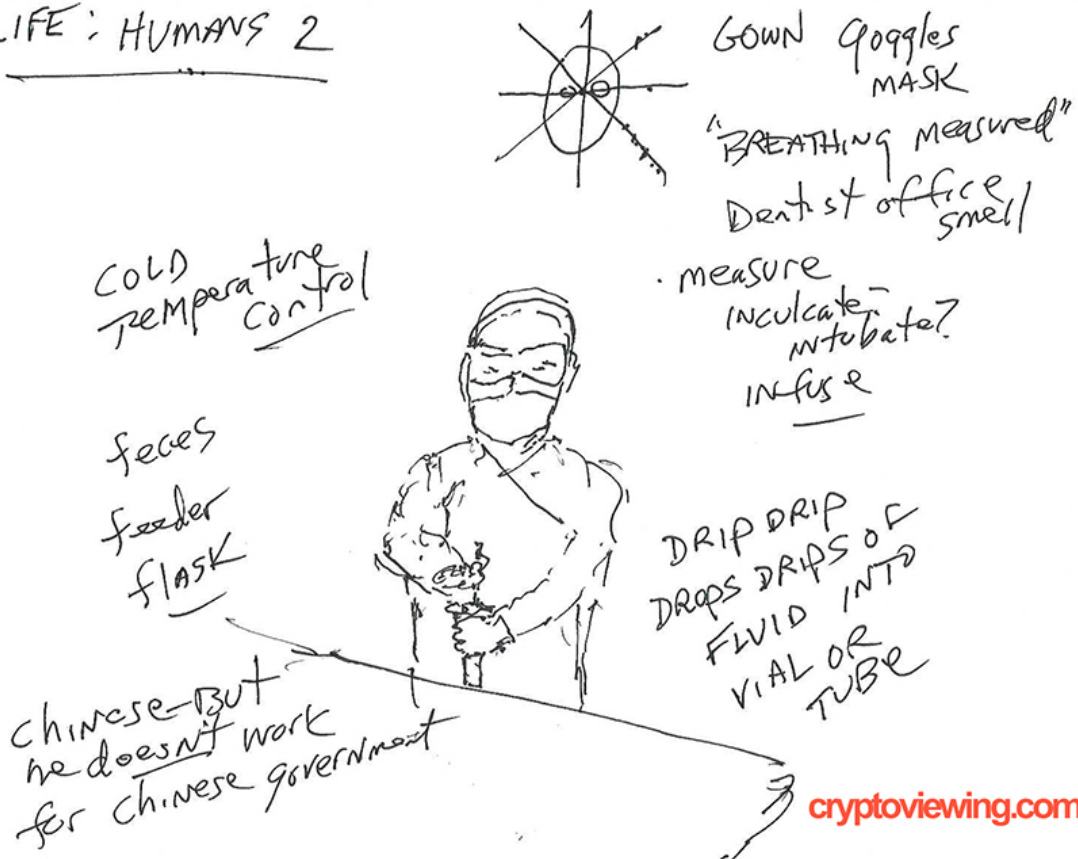 LIFE: HUMANS 2
GOWN goggles
MASK
"BREATHING measured"
Dentist office
smell
COLD
Temperature
control
· measure
INCULCATE-
intubate?
INfuse
feces
feeder
flask
DRIP DRIP
DROPS DRIPS OF
FLUID INTO
VIAL OR
TUBE
chinese-BUT
he doesn't work
for chinese government
cryptoviewing.com